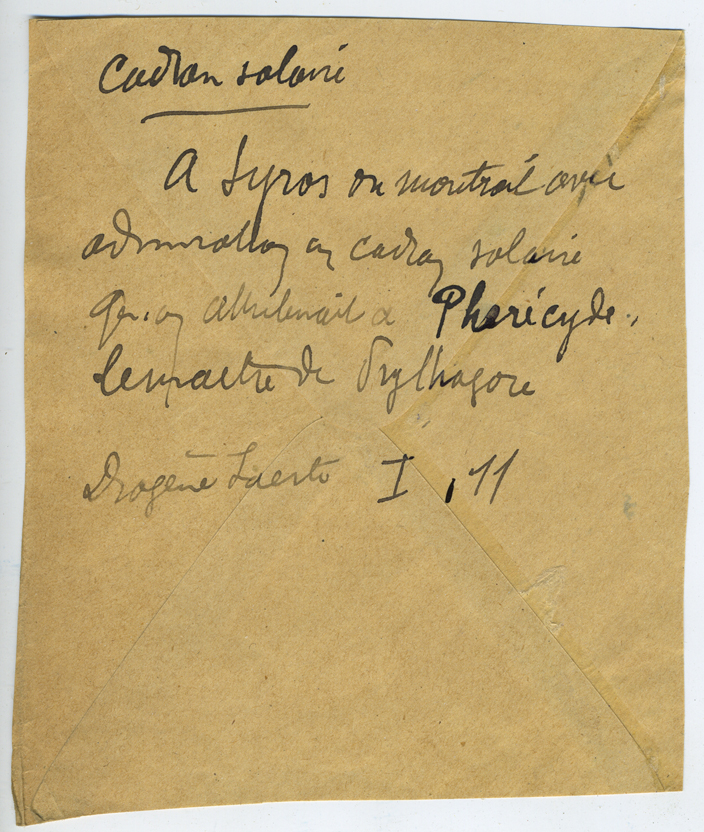 Cadran solaire
A Syros on montrait avec
admiration un cadran solaire
qu'on attribuait à Pherécyde,
le maître de Pythagore
Diogène Laerte I, 11